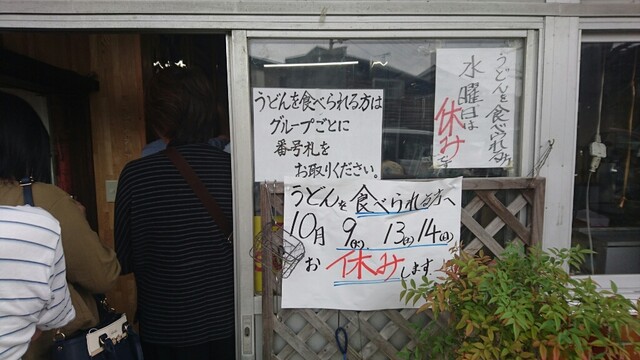 うどんを食べられる方は
グループごとに
番号札を
お取りください。
うどんを食べられる方へ
10月9㈫、13㈯14㈰
お休みします
うどんを食べられる方
水曜日は
休みです